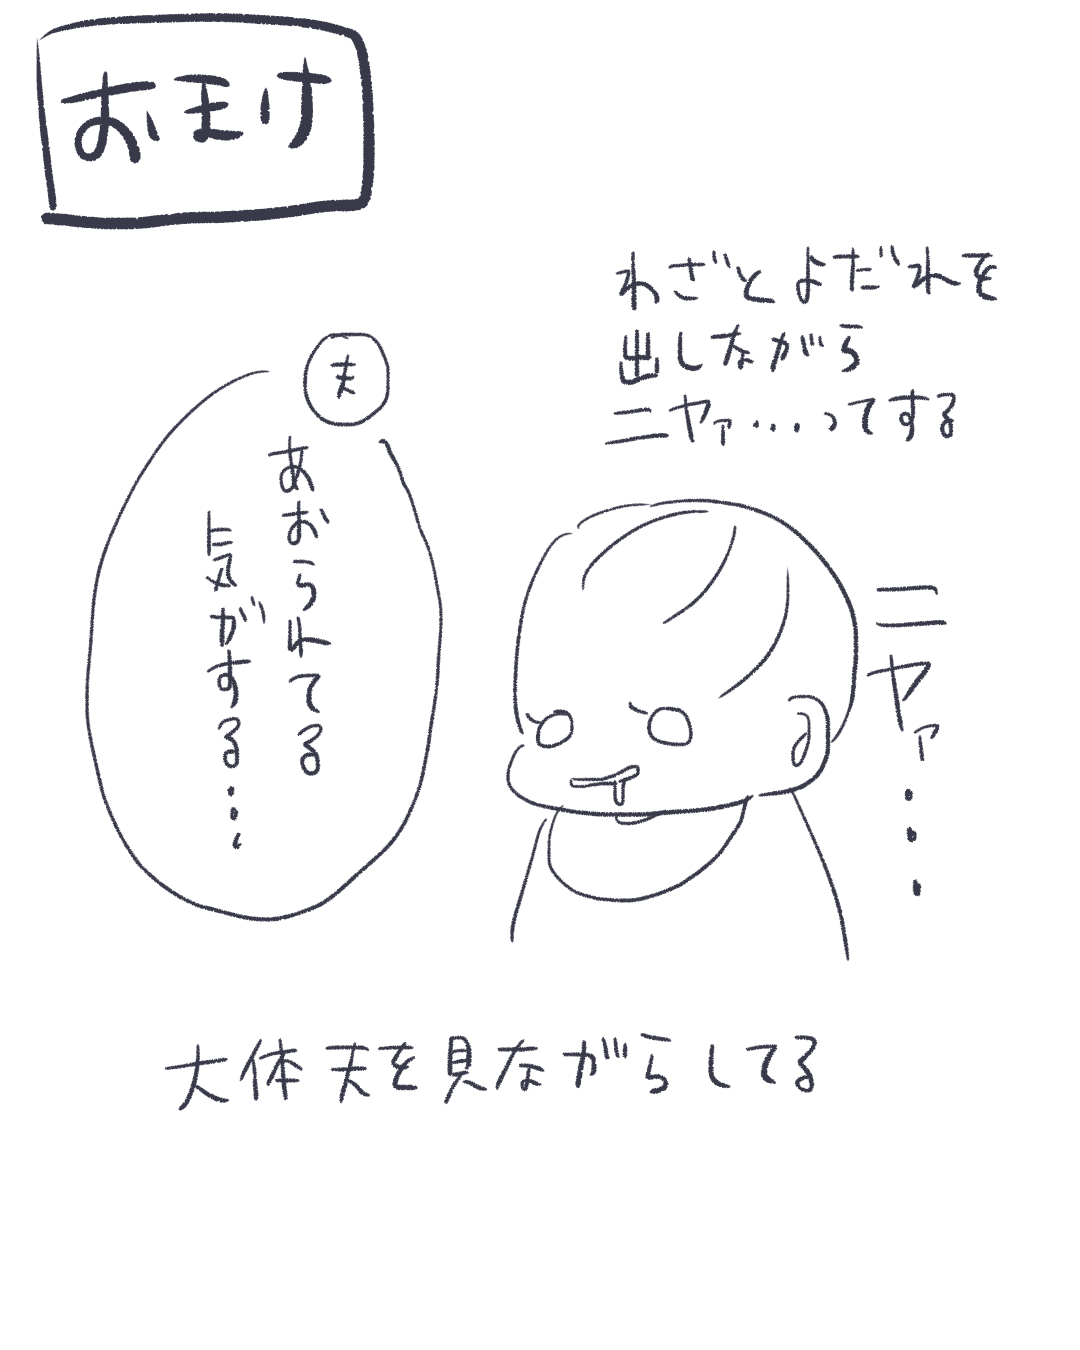 おまけ
わざとよだれを
出しながら
ニヤァ...ってする
ニヤァ...
夫
あおられてる
気がする...
大体夫を見ながらしてる